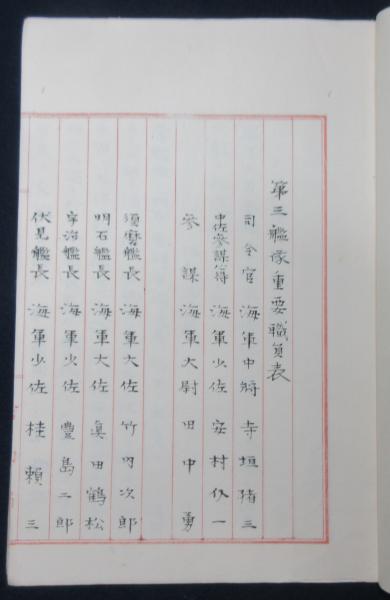 第三艦隊重要職員表
司令官 海軍中將 寺垣猪三
中佐参謀等 海軍少佐 安村仪一
参謀 海軍大尉 田中勇
須磨艦長 海軍大佐 竹内次郎
明石艦長 海軍大佐 眞田鶴松
宇治艦長 海軍少佐 豊島二郎
伏見艦長 海軍少佐 桂頼三